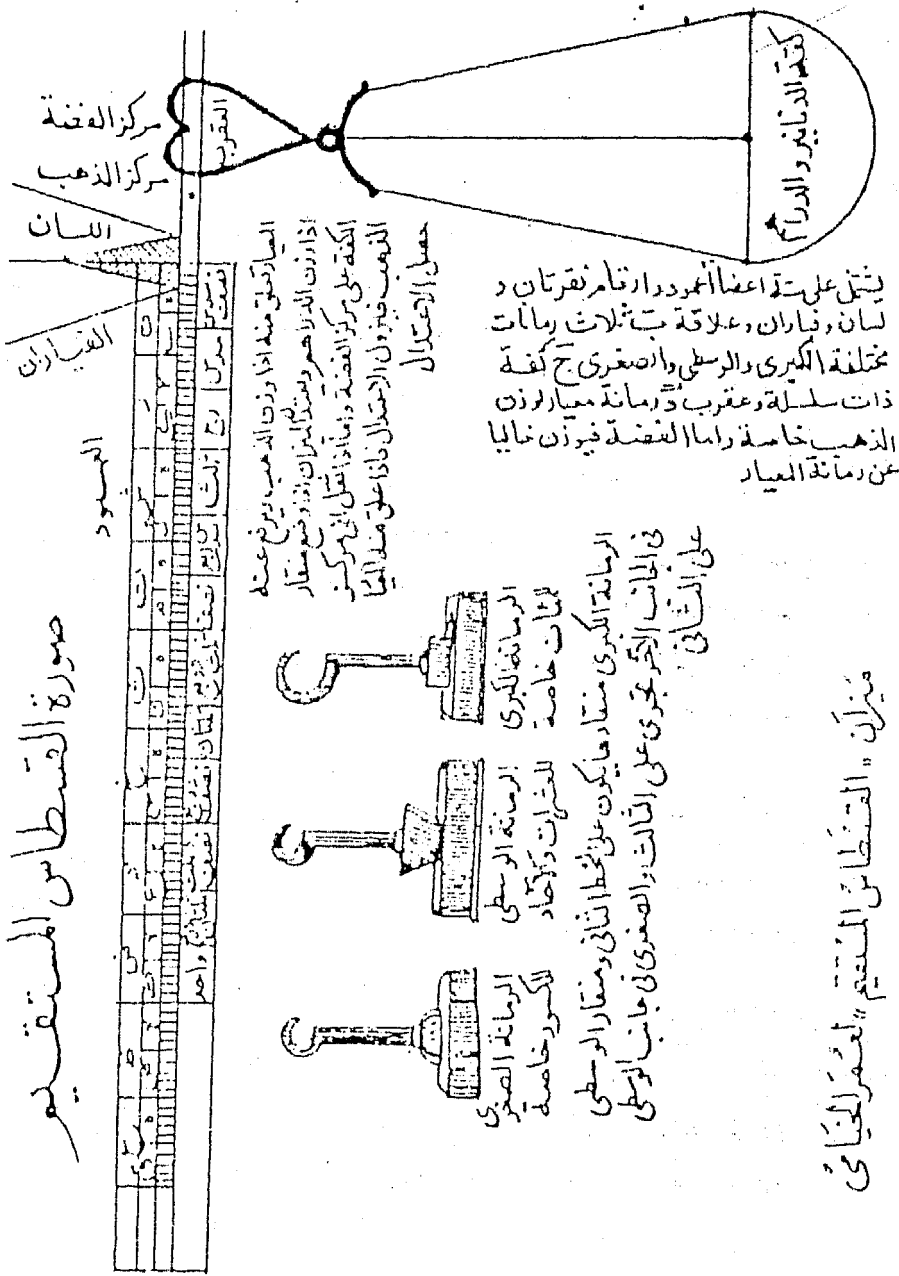 صورة القسطاس المستقيم
مركز الفضة
مركز الذهب
اللسان
الفياران
العمود
العقرب
كفة الدنانير والدراهم
ربع
ثلث
واحد
يشتمل على ستة اعضا أ عمود و ارقام نقرتان و
لسان وفياران وعلاقة ب ثلاث رمانات
مختلفة الكبرى والوسطى والصغرى ج كفة
ذات سلسلة وعقرب د رمانة معيار لوزن
الذهب خاصة واما الفضة فيوزن خاليا
عن رمانة المعيار
المعيار تعلق منه اذا وزن الذهب ويرفع عنه
اذا وزن الدراهم وتعتد الميزان اذا وضع منقار
الكفة على مركز الفضة واما اذا نقل الى مركز
الذهب فيزول الاعتدال فاذا علق منه المعيا
حصل الاعتدال
الرمانة الكبرى
للمئات خاصة
الرمانة الوسطى
للعشرات والآحاد
الرمانة الصغرى
للكسور خاصة
الرمانة الكبرى منقارها يكون على الخط الثاني ومنقار الوسطى
في الجانب الآخر يجرى على الثالث والصغرى في جانب الوسطى
على الثاني
ميزان "القسطاس المستقيم" لعمر الخيامي